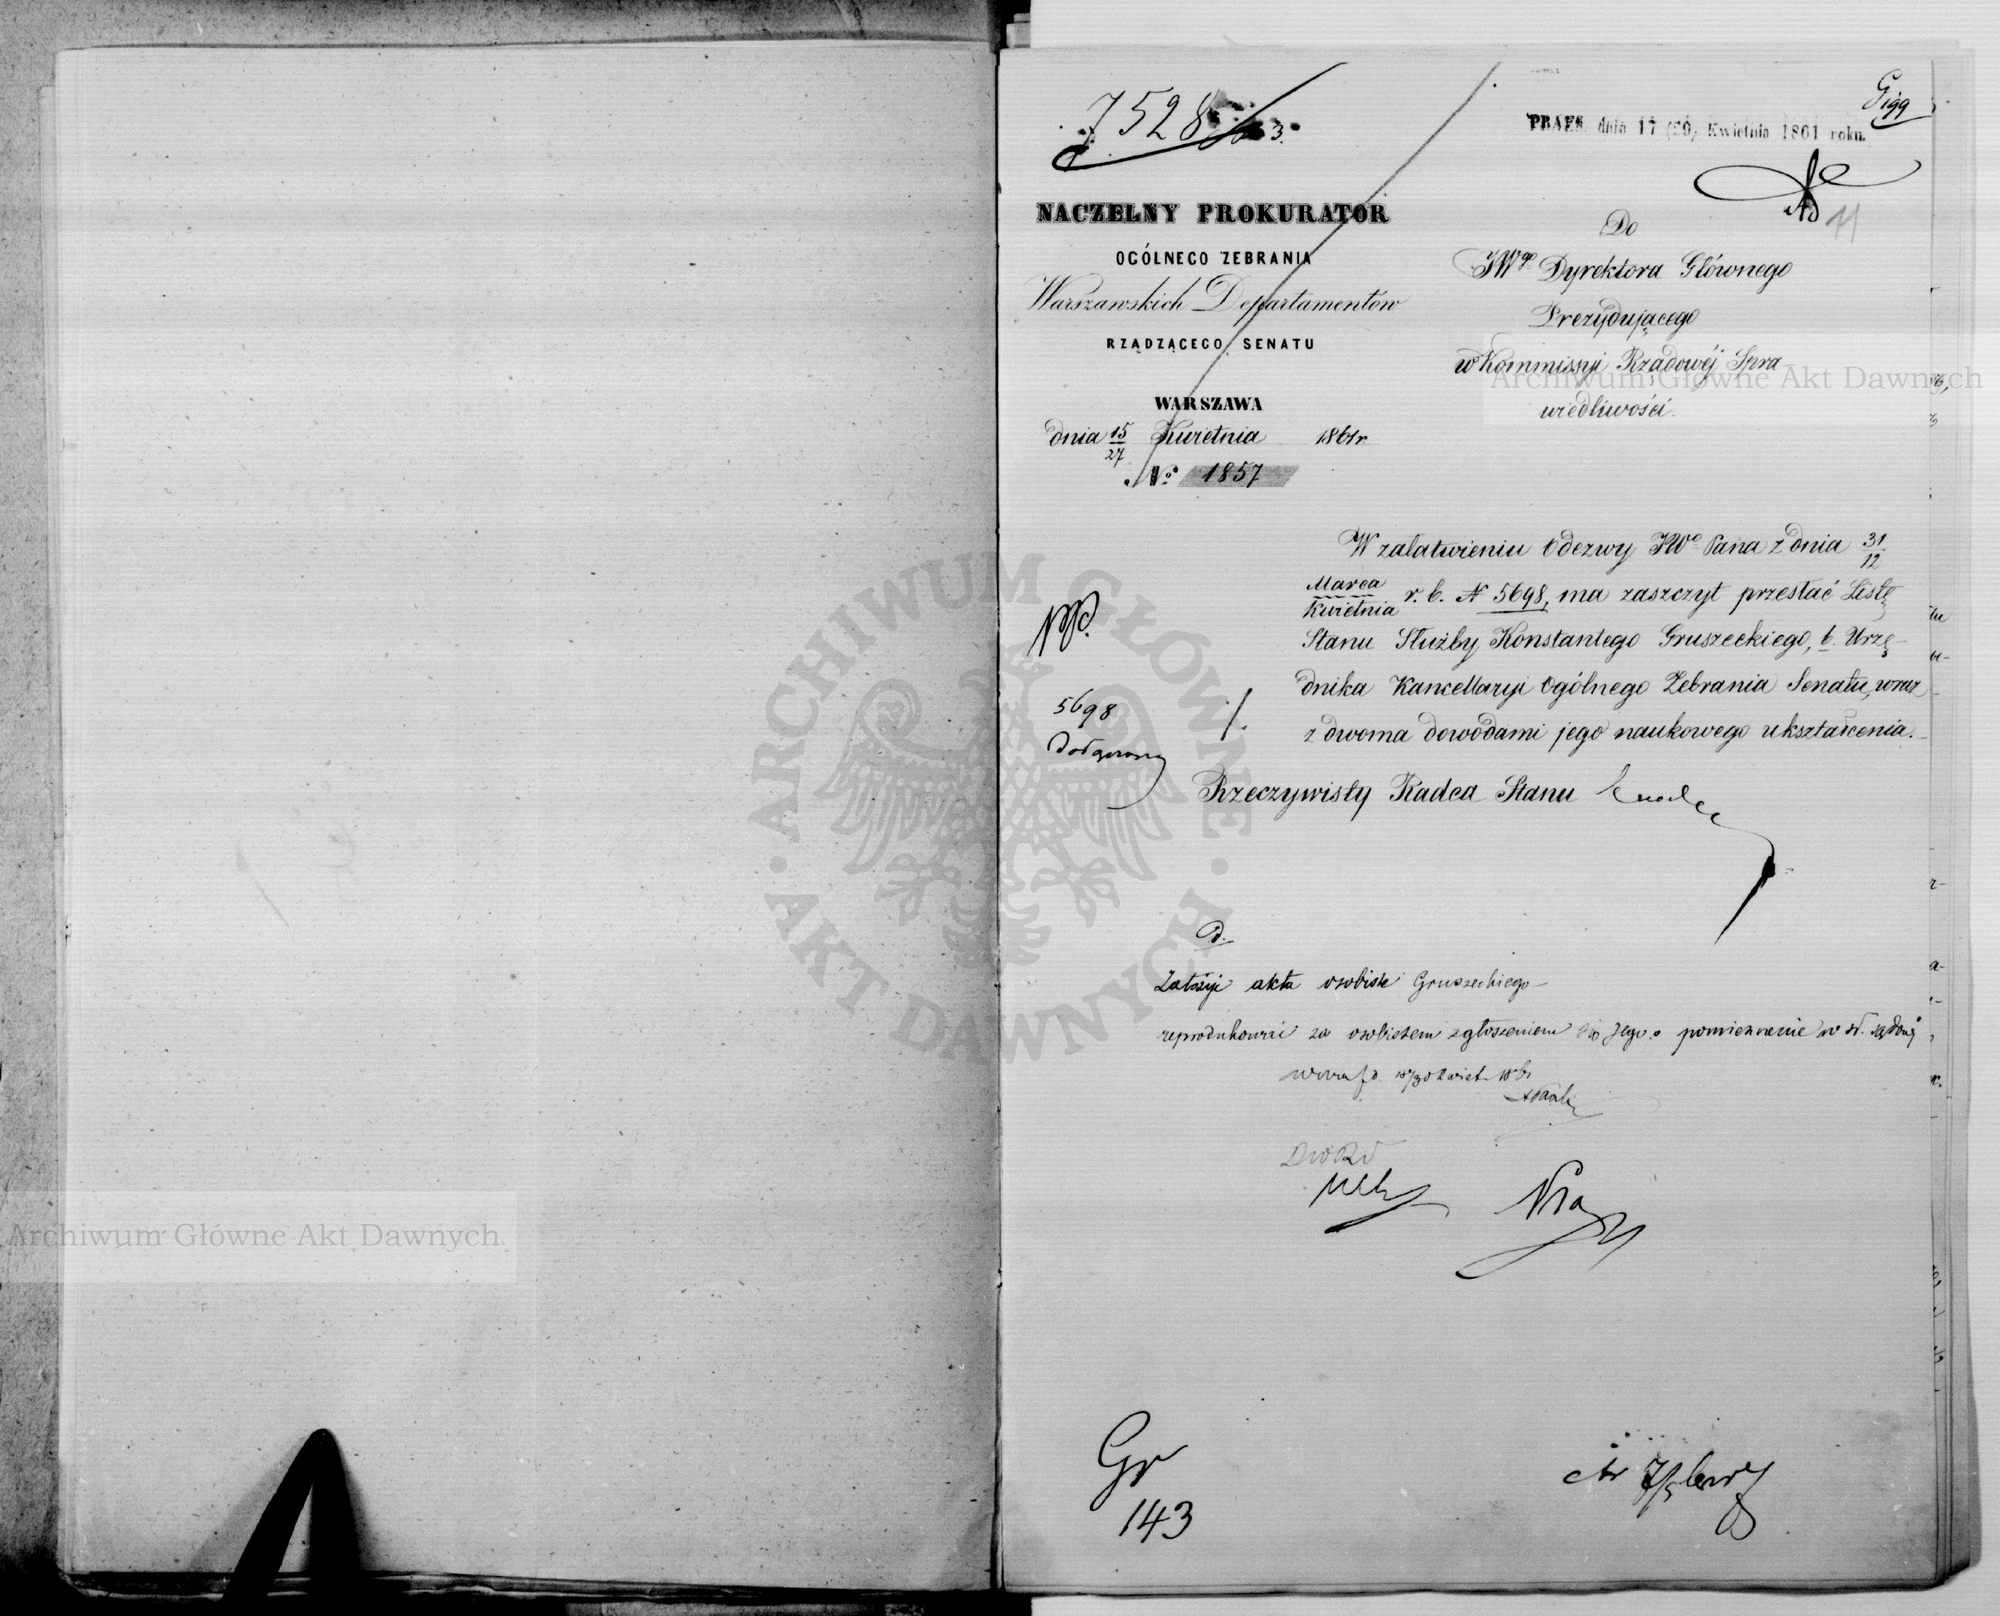 7528
3.
PRAES. dnia 17 (29) Kwietnia 1861 roku.
NACZELNY PROKURATOR
OGÓLNEGO ZEBRANIA
Warszawskich Departamentów
RZĄDZĄCEGO SENATU
WARSZAWA
dnia 15/27 Kwietnia 1861 r.
№ 1857
11
Do
JWgo Dyrektora Głównego
Prezydującego
w Kommissyi Rządowéj Spra-
wiedliwości.
W załatwieniu Odezwy JWo Pana z dnia 31/12
Marca/Kwietnia r. b. N 5698, ma zaszczyt przesłać Listę
Stanu Służby Konstantego Gruszeckiego, b. Urzę-
dnika Kancellaryi Ogólnego Zebrania Senatu, wraz
z dwoma dowodami jego naukowego ukształcenia.
Rzeczywisty Radca Stanu
5698
d.
akta osobiste Gruszeckiego
reprodukować za osobistem zgłoszeniem się jego o pomieszczenie w
18/30 Kwiet. 1861
Gr
143
Archiwum Główne Akt Dawnych
Archiwum Główne Akt Dawnych
ARCHIWUM GŁÓWNE · AKT DAWNYCH ·